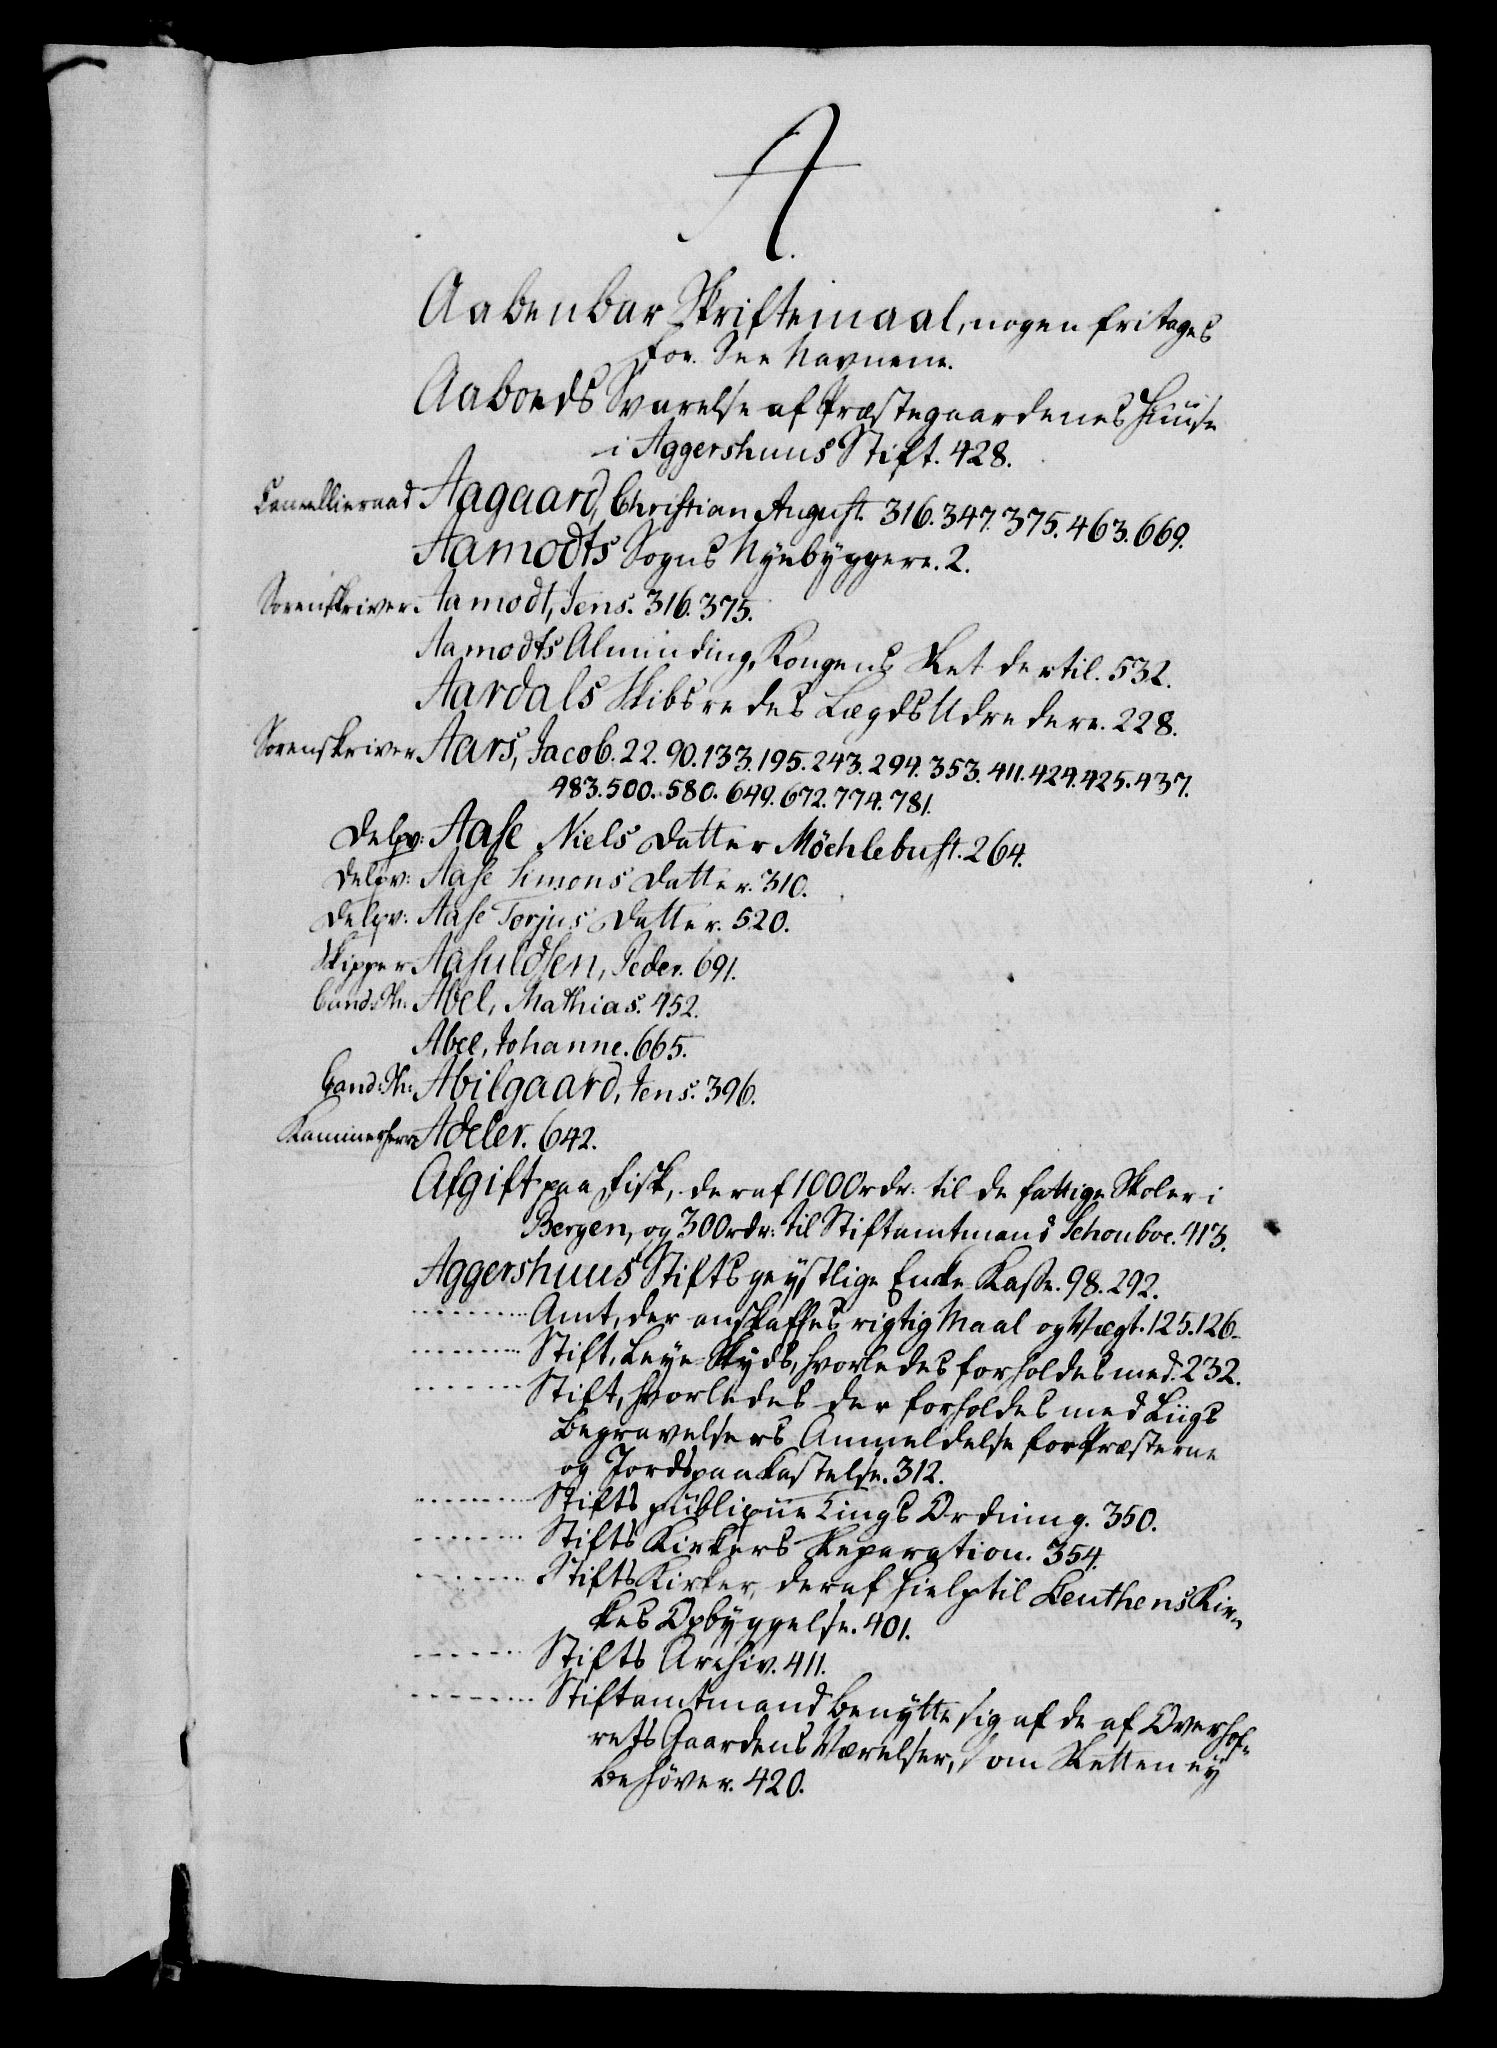 A.
Aabenbar Skriftemaal, nogen fritages
for. See Navnene.
Aaboeds Svarelse af Præstegaardenes Huuse
i Aggershuus Stift. 428.
Cancellieraad Aagaard, Christian August. 316. 347. 375. 463. 669.
Aamodts Sogns Nyebyggere. 2.
Sorenskriver Aamodt, Jens. 316. 375.
Aamodts Alminding, Kongens Ret dertil. 532.
Aardals Skibsredes Lægds Udredere. 228.
Sorenskriver Aars, Jacob. 22. 90. 133. 195. 243. 294. 353. 411. 424. 425. 437.
483. 500. 580. 649. 672. 774. 781.
Delqv: Aase Niels Datter Möchlebust. 264.
Delqv: Aase Simons Datter. 310.
Delqv: Aase Torjus Datter. 520.
Skipper Aasuldsen, Peder. 691.
Cand: Th: Abel, Mathias. 452.
Abel, Johanne. 665.
Cand: Th: Abilgaard, Jens. 396.
Kammerherre Adeler. 642.
Afgift paa Fisk, deraf 1000 rdr. til de fattige Skoler i
Bergen, og 300 rdr: til Stiftamtmand Schouboe. 413.
Aggershuus Stifts geystlige Enke Kasse. 98. 292.
Amt, der anskaffes rigtig Maal og Vægt. 125. 126.
Stift, Leye Skyds, hvorledes forholdes med. 232.
Stift, hvorledes der forholdes med Liigs
Begravelsers Anmeldelse for Præsterne
og Jordspaakastelse. 312.
Stifts publiqve Tings Ordning. 350.
Stifts Kirkers Reparation. 354.
Stifts Kirker, deraf Hielp til Leuthens Kir-
kes Opbyggelse. 401.
Stifts Archiv. 411.
Stiftamtmand benytte sig af de af Overhof-
rets Gaardens Værelser, som Retten ey
behöver. 420.